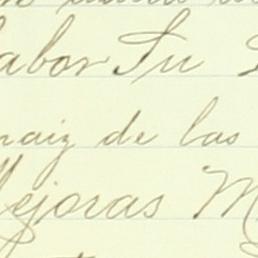 labor Su
maiz de las
Mejoras M